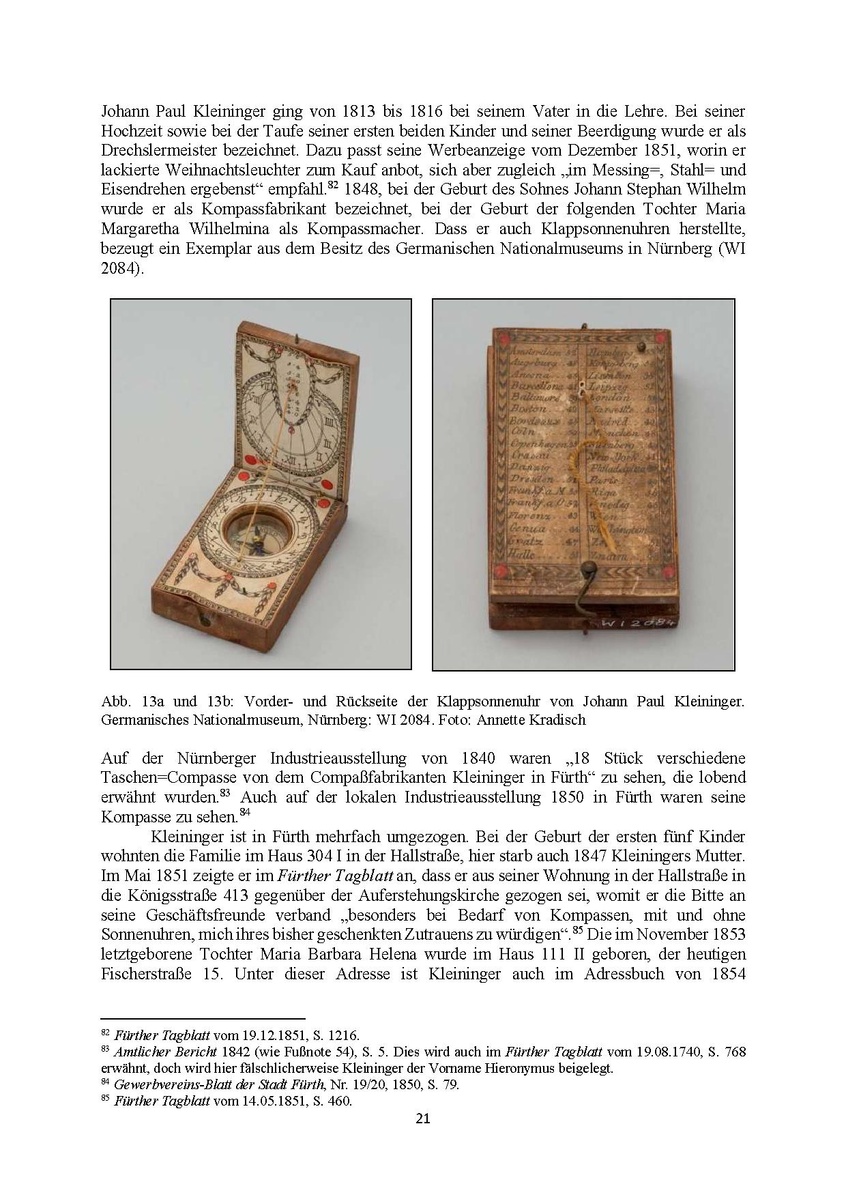 Johann Paul Kleininger ging von 1813 bis 1816 bei seinem Vater in die Lehre. Bei seiner
Hochzeit sowie bei der Taufe seiner ersten beiden Kinder und seiner Beerdigung wurde er als
Drechslermeister bezeichnet. Dazu passt seine Werbeanzeige vom Dezember 1851, worin er
lackierte Weihnachtsleuchter zum Kauf anbot, sich aber zugleich „im Messing=, Stahl= und
Eisendrehen ergebenst“ empfahl.⁸² 1848, bei der Geburt des Sohnes Johann Stephan Wilhelm
wurde er als Kompassfabrikant bezeichnet, bei der Geburt der folgenden Tochter Maria
Margaretha Wilhelmina als Kompassmacher. Dass er auch Klappsonnenuhren herstellte,
bezeugt ein Exemplar aus dem Besitz des Germanischen Nationalmuseums in Nürnberg (WI
2084).
Amsterdam
Augsburg
Ancona
Barcellona
Baltimore
Boston
Bordeaux
Cöln
Copenhagen
Danzig
Dresden
Frankf. a. M.
Frankf. a. O.
Florenz
Genua
Gratz
Halle
Hamburg
Königsberg
Leipzig
London
Madrid
München
Nürnberg
New-York
Philadelphia
Paris
Riga
Venedig
Wien
WI 2084
Abb. 13a und 13b: Vorder- und Rückseite der Klappsonnenuhr von Johann Paul Kleininger.
Germanisches Nationalmuseum, Nürnberg: WI 2084. Foto: Annette Kradisch
Auf der Nürnberger Industrieausstellung von 1840 waren „18 Stück verschiedene
Taschen=Compasse von dem Compaßfabrikanten Kleininger in Fürth“ zu sehen, die lobend
erwähnt wurden.⁸³ Auch auf der lokalen Industrieausstellung 1850 in Fürth waren seine
Kompasse zu sehen.⁸⁴
Kleininger ist in Fürth mehrfach umgezogen. Bei der Geburt der ersten fünf Kinder
wohnten die Familie im Haus 304 I in der Hallstraße, hier starb auch 1847 Kleiningers Mutter.
Im Mai 1851 zeigte er im Fürther Tagblatt an, dass er aus seiner Wohnung in der Hallstraße in
die Königsstraße 413 gegenüber der Auferstehungskirche gezogen sei, womit er die Bitte an
seine Geschäftsfreunde verband „besonders bei Bedarf von Kompassen, mit und ohne
Sonnenuhren, mich ihres bisher geschenkten Zutrauens zu würdigen“.⁸⁵ Die im November 1853
letztgeborene Tochter Maria Barbara Helena wurde im Haus 111 II geboren, der heutigen
Fischerstraße 15. Unter dieser Adresse ist Kleininger auch im Adressbuch von 1854
⁸² Fürther Tagblatt vom 19.12.1851, S. 1216.
⁸³ Amtlicher Bericht 1842 (wie Fußnote 54), S. 5. Dies wird auch im Fürther Tagblatt vom 19.08.1740, S. 768
erwähnt, doch wird hier fälschlicherweise Kleininger der Vorname Hieronymus beigelegt.
⁸⁴ Gewerbvereins-Blatt der Stadt Fürth, Nr. 19/20, 1850, S. 79.
⁸⁵ Fürther Tagblatt vom 14.05.1851, S. 460.
21